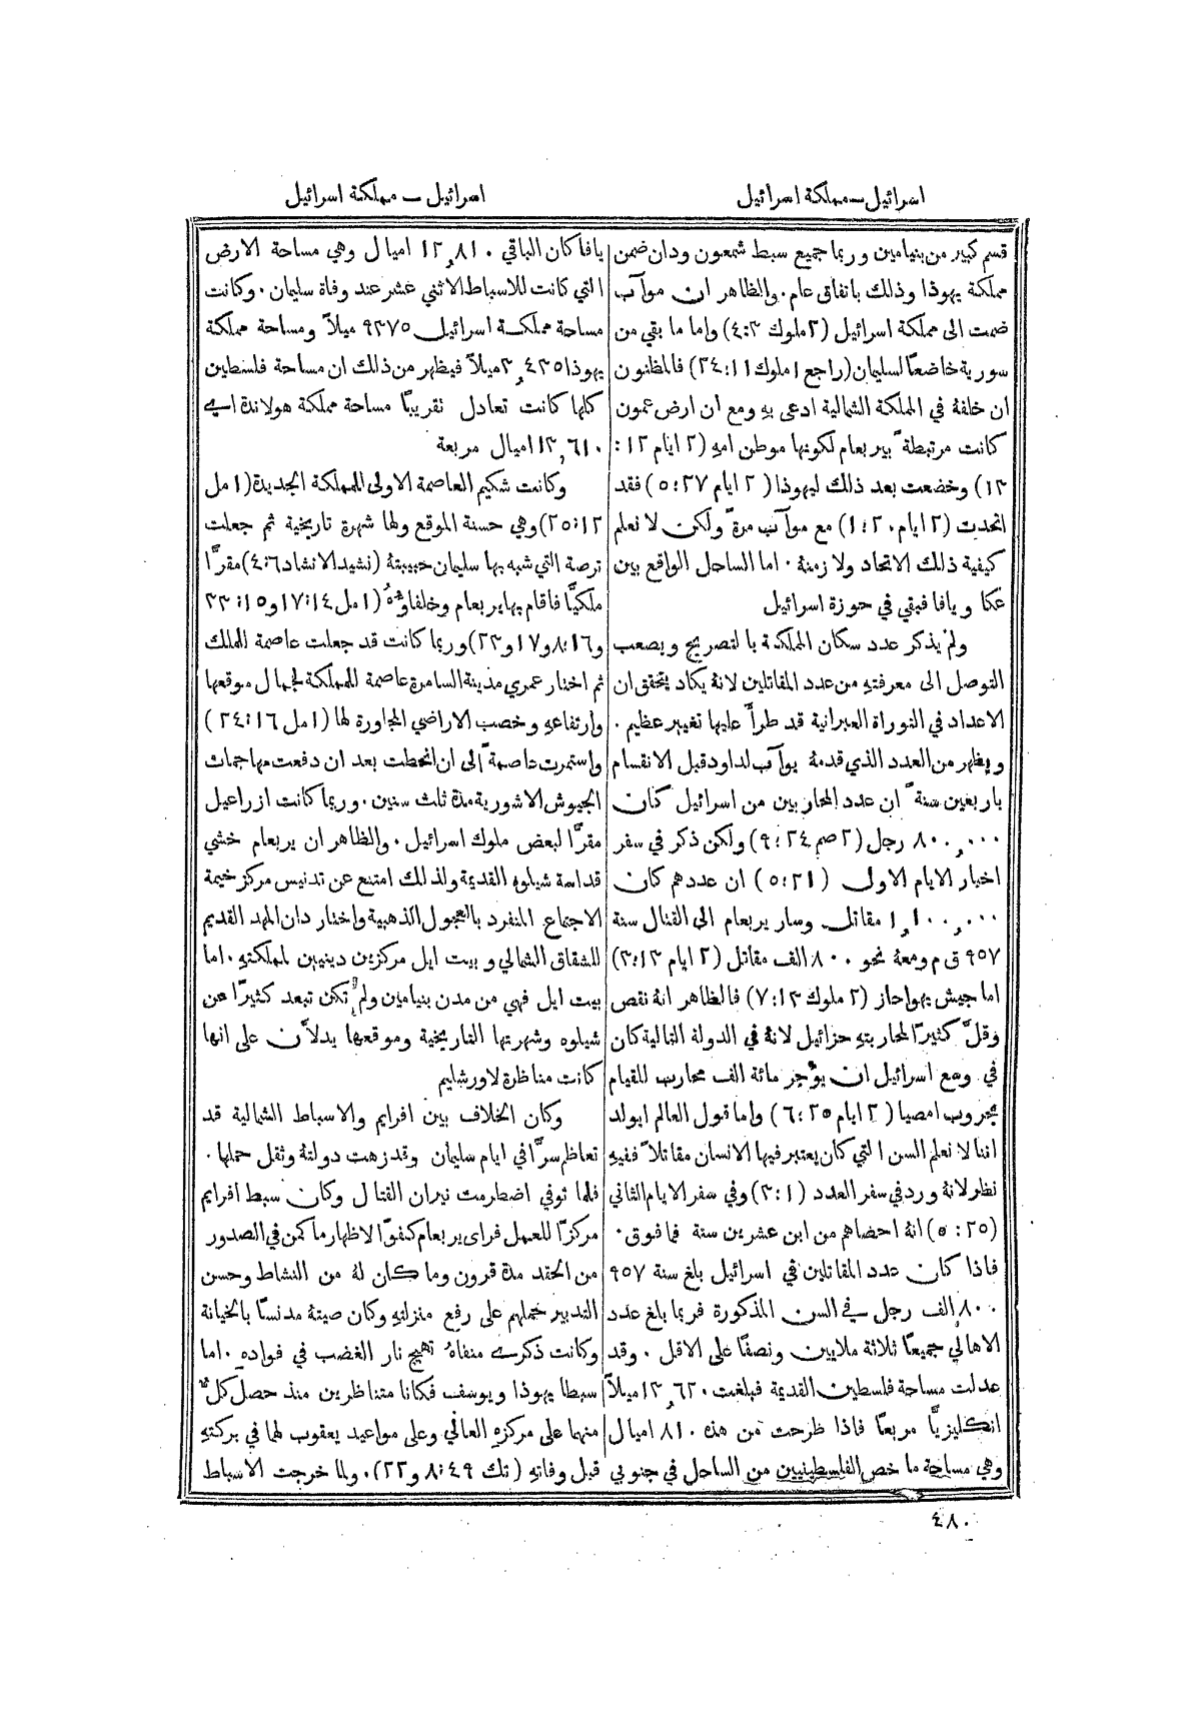 اسرائيل—مملكة اسرائيل
اسرائيل — مملكة اسرائيل
قسم كبير من بنيامين وربما جميع سبط شمعون ودان ضمن
مملكة يهوذا وذلك باتفاق عام. والظاهر ان موآب
ضمت الى مملكة اسرائيل (٢ملوك ٣:٤) واما ما بقي من
سورية خاضعًا لسليمان (راجع ١ملوك ١١:٢٤) فالمظنون
ان خلفهُ في المملكة الشمالية ادعى بهِ ومع ان ارض عمون
كانت مرتبطةً بيربعام لكونها موطن امهِ (٢ ايام ١٢:
١٣) وخضعت بعد ذلك ليهوذا (٢ ايام ٢٧:٥) فقد
اتحدت (٢ ايام ٢٠:١) مع موآب مرةً ولكن لا نعلم
كيفية ذلك الاتحاد ولا زمنهُ. اما الساحل الواقع بين
عكا ويافا فبقي في حوزة اسرائيل
ولم يذكر عدد سكان المملكة بالتصريح ويصعب
التوصل الى معرفتهِ من عدد المقاتلين لانهُ يكاد يتحقق ان
الاعداد في التوراة العبرانية قد طرأ عليها تغيير عظيم.
ويظهر من العدد الذي قدمهُ يوآب لداود قبل الانقسام
باربعين سنةً ان عدد المحاربين من اسرائيل كان
٨٠٠٬٠٠٠ رجل (٢ صم ٢٤:٩) ولكن ذكر في سفر
اخبار الايام الاول (٢١:٥) ان عددهم كان
١٬١٠٠٬٠٠٠ مقاتل وسار يربعام الى القتال سنة
٩٥٧ ق م ومعهُ نحو ٨٠٠ الف مقاتل (٢ ايام ١٣:٣)
اما جيش يهواحاز (٢ ملوك ١٣:٧) فالظاهر انهُ نقص
وقلَّ كثيرًا لمحاربتهِ حزائيل لانهُ في الدولة التالية كان
في وسع اسرائيل ان يؤجر مائة الف محارب للقيام
بحروب امصيا (٢ ايام ٢٥:٦) واما قول العالم ايولد
اننا لا نعلم السن التي كان يعتبر فيها الانسان مقاتلاً ففيهِ
نظر لانهُ ورد في سفر العدد (١:٣) وفي سفر الايام الثاني
(٢٥:٥) انهُ احضاهم من ابن عشرين سنة فما فوق.
فاذا كان عدد المقاتلين في اسرائيل بلغ سنة ٩٥٧
٨٠٠ الف رجل في السن المذكورة فربما بلغ عدد
الاهالي جميعًا ثلاثة ملايين ونصفًا على الاقل. وقد
عدلت مساحة فلسطين القديمة فبلغت ١٣٬٦٢٠ ميلاً
انكليزيًّا مربعًا فاذا طرحت من هذه ٨١٠ اميال
وهي مساحة ما خص الفلسطينيين من الساحل في جنوبي
يافا كان الباقي ١٢٬٨١٠ اميال وهي مساحة الارض
التي كانت للاسباط الاثني عشر عند وفاة سليمان. وكانت
مساحة مملكة اسرائيل ٩٣٧٥ ميلاً ومساحة مملكة
يهوذا ٣٬٤٣٥ ميلاً فيظهر من ذلك ان مساحة فلسطين
كلها كانت تعادل تقريبًا مساحة مملكة هولاندة اي
١٣٬٦١٠ اميال مربعة
وكانت شكيم العاصمة الاولى للمملكة الجديدة (١مل
١٢:٢٥) وهي حسنة الموقع ولها شهرة تاريخية ثم جعلت
ترصة التي شبه بها سليمان حبيبتهُ (نشيد الانشاد ٦:٤) مقرًّا
ملكيًّا فاقام بها يربعام وخلفاؤهُ (١مل ١٤:١٧ و١٥:٣٣
و١٦:٨ و١٧ و٢٣) وربما كانت قد جعلت عاصمة الملك
ثم اختار عمري مدينة السامرة عاصمة للمملكة لجمال موقعها
وارتفاعهِ وخصب الاراضي المجاورة لها (١مل ١٦:٢٤)
واستمرت عاصمةً الى ان انحطت بعد ان دفعت مهاجمات
الجيوش الاشورية مدة ثلث سنين. وربما كانت ازراعيل
مقرًّا لبعض ملوك اسرائيل. والظاهر ان يربعام خشي
قداسة شيلوه القديمة ولذلك امتنع عن تدنيس مركز خيمة
الاجتماع المنفرد بالعجول الذهبية واختار دان المهد القديم
للشقاق الشمالي وبيت ايل مركزين دينيين لمملكتهِ. اما
بيت ايل فهي من مدن بنيامين ولم تكن تبعد كثيرًا عن
شيلوه وشهرتها التاريخية وموقعها يدلاَّن على انها
كانت مناظرة لاورشليم
وكان الخلاف بين افرايم والاسباط الشمالية قد
تعاظم سرًّا في ايام سليمان وقد زهت دولتهُ وثقل حملها.
فلما توفي اضطرمت نيران القتال وكان سبط افرايم
مركزًا للعمل فراى يربعام كفوًا لاظهار ما كمن في الصدور
من الحقد مدة قرون وما كان لهُ من النشاط وحسن
التدبير حملهم على رفع منزلتهِ وكان صيتهُ مدنسًا بالخيانة
وكانت ذكرى منفاهُ تهيج نار الغضب في فواده. اما
سبطا يهوذا ويوسف فكانا متناظرين منذ حصل كلٌّ
منهما على مركزهِ العالي وعلى مواعيد يعقوب لهما في بركتهِ
قبل وفاتهِ (تك ٤٩:٨ و٢٢). ولما خرجت الاسباط
٤٨٠